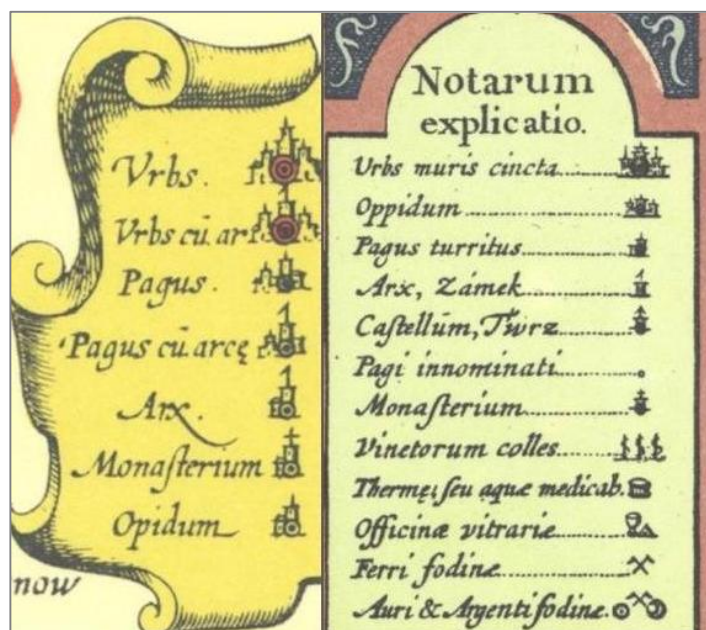 Vrbs.
Vrbs cū ar
Pagus.
Pagus cū arcę
Arx.
Monaſterium
Opidum
now
Notarum
explicatio.
Urbs muris cincta
Oppidum
Pagus turritus
Arx, Zámek
Caſtellũm, Twrz
Pagi innominati
Monaſterium
Vinetorum colles
Thermę, ſeu aquæ medicab.
Officinæ vitrariæ
Ferri fodinæ
Auri & Argenti fodinæ.